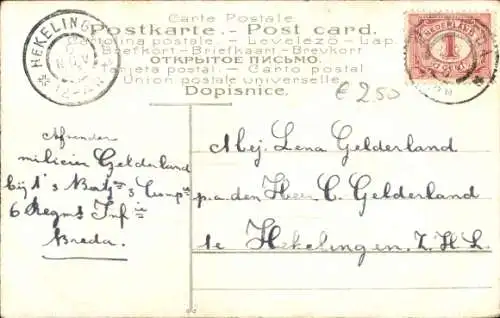 Carte Postale.
Postkarte. – Post card.
Cartolina postale – Levelező-Lap.
Brefkort – Briefkaart – Brevkort
ОТКРЫТОЕ ПИСЬМО.
Tarjeta postal – Carto postal
Union postale universelle.
Dopisnice.
HEKELING
NEDERLAND
1
CENT
€ 2.50
Afzender
milicien Gelderland
bij 1's Bat 3 Comp ie
6 Regmt Inf ie
Breda.
Mej. Lena Gelderland
p.a. den Heer C. Gelderland
te Hekelingen. Z.H.